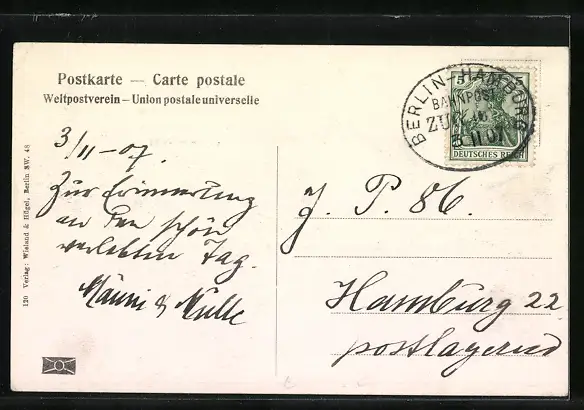 Postkarte — Carte postale
Weltpostverein – Union postale universelle
3/11-07.
Zur Erinnerung
an den schön
verlebten Tag.
Männi & Mülle
J. P. 86.
Hamburg 22
postlagernd
BERLIN-HAMBURG
BAHNPOST
ZUG
5.11.07
5 5
DEUTSCHES REICH
120 Verlag: Wieland & Hügel, Berlin SW. 48